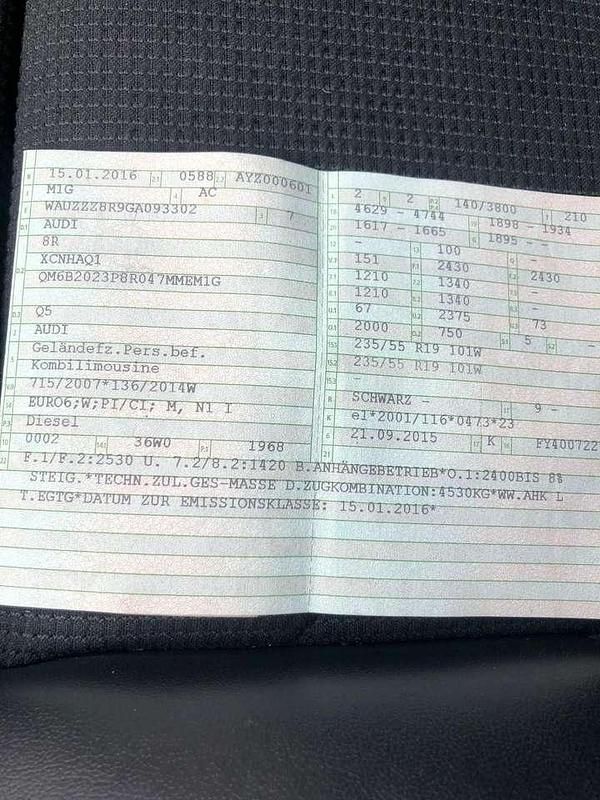 15.01.2016 0588 AYZ000601
M1G AC
WAUZZZ8R9GA093302 7
AUDI
8R
XCNHAQ1
QM6B2023P8R047MMEM1G
Q5
AUDI
Geländefz.Pers.bef.
Kombilimousine
715/2007*136/2014W
EURO6;W;PI/CI; M, N1 I
Diesel
0002 36W0 1968
2 2 140/3800 210
4629 - 4744 1898 - 1934
1617 - 1665 1895 --
- 100 -
151 2430
1210 1340 2430
1210 1340 -
67 2375 -
2000 750 73
235/55 R19 101W 5 -
235/55 R19 101W
-
SCHWARZ - 9 -
e1*2001/116*0473*23
21.09.2015 K FY400722
F.1/F.2:2530 U. 7.2/8.2:1420 B.ANHÄNGEBETRIEB*O.1:2400BIS 8%
STEIG.*TECHN.ZUL.GES-MASSE D.ZUGKOMBINATION:4530KG*WW.AHK L
T.EGTG*DATUM ZUR EMISSIONSKLASSE: 15.01.2016*